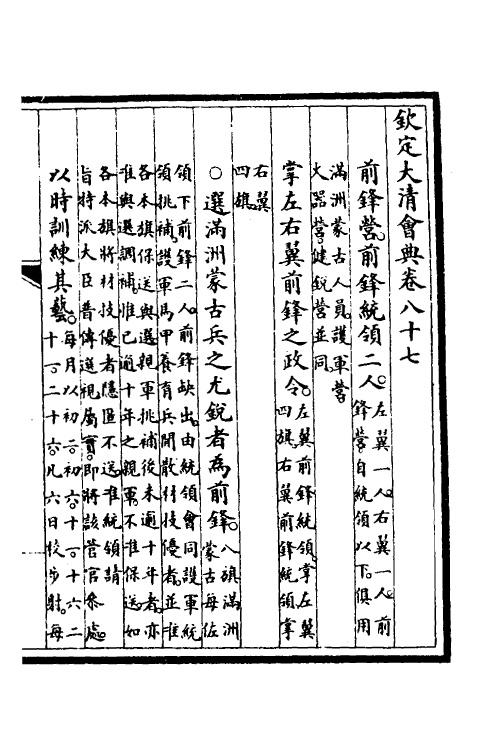 欽定大清會典卷八十七
前鋒營。前鋒統領二人。左翼一人。右翼一人。前
鋒營。自統領以下。俱用
滿洲蒙古人員護軍營。
火器營。健銳營並同。
掌左右翼前鋒之政令。左翼前鋒統領。掌左翼
四旗。右翼前鋒統領。掌
右翼
四旗。
○選滿洲蒙古兵之尤銳者為前鋒。八旗滿洲
蒙古每佐
領下前鋒二人。前鋒缺出。由統領會同護軍統
領挑補。護軍馬甲養育兵閒散材技優者。並准
各本旗保送與選。親軍挑補後未逾十年者。亦
准與選調補。惟已逾十年之親軍。不准保送。如
各本旗將材技優者隱匿不送。准統領請
旨特派大臣普傳選視屬實。即將該管官參處。
以時訓練其藝。每月以初一。初六。十一。十六。二
十一。二十六。凡六日校步射。每